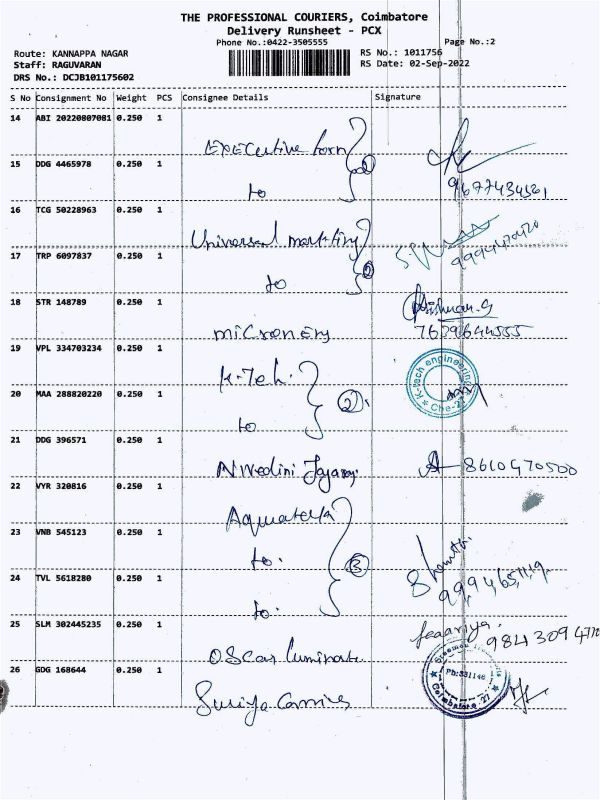 THE PROFESSIONAL COURIERS, Coimbatore
Delivery Runsheet - PCX
Phone No.:0422-3505555 Page No.:2
Route: KANNAPPA NAGAR RS No.: 1011756
Staff: RAGUVARAN RS Date: 02-Sep-2022
DRS No.: DCJB101175602
S No Consignment No Weight PCS Consignee Details Signature
14 ABI 20220807081 0.250 1
Executive
15 DDG 4465978 0.250 1
to
16 TCG 50228963 0.250 1
Universal
17 TRP 6097837 0.250 1
to
18 STR 148789 0.250 1
7629644555
19 VPL 334703234 0.250 1
K-Teh.
K-tech engineering
Che-27
20 MAA 288820220 0.250 1
2
to
21 DDG 396571 0.250 1
8610470500
22 VYR 320816 0.250 1
23 VNB 545123 0.250 1
to.
3
24 TVL 5618280 0.250 1
to.
25 SLM 302445235 0.250 1
Oscar
26 GDG 168644 0.250 1
Coimbatore-27